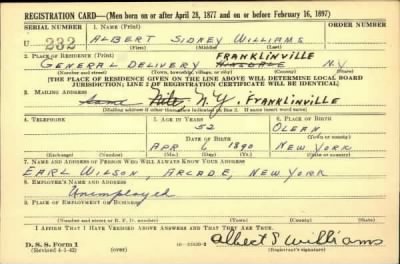 REGISTRATION CARD—(Men born on or after April 28, 1877 and on or before February 16, 1897)
SERIAL NUMBER 1. NAME (Print) ORDER NUMBER
U 232 ALBERT SIDNEY WILLIAMS
(First) (Middle) (Last)
2. PLACE OF RESIDENCE (Print) FRANKLINVILLE
GENERAL DELIVERY HINSDALE N.Y.
(Number and street) (Town, township, village, or city) (County) (State)
[THE PLACE OF RESIDENCE GIVEN ON THE LINE ABOVE WILL DETERMINE LOCAL BOARD
JURISDICTION; LINE 2 OF REGISTRATION CERTIFICATE WILL BE IDENTICAL]
3. MAILING ADDRESS
Same N.Y. FRANKLINVILLE
[Mailing address if other than place indicated on line 2. If same insert word same]
4. TELEPHONE 5. AGE IN YEARS 6. PLACE OF BIRTH
52 OLEAN
DATE OF BIRTH (Town or county)
APR 6 1890 NEW YORK
(Exchange) (Number) (Mo.) (Day) (Yr.) (State or country)
7. NAME AND ADDRESS OF PERSON WHO WILL ALWAYS KNOW YOUR ADDRESS
EARL WILSON ARCADE, NEW YORK
8. EMPLOYER'S NAME AND ADDRESS
Unemployed
9. PLACE OF EMPLOYMENT OR BUSINESS
(Number and street or R. F. D. number) (Town) (County) (State)
I AFFIRM THAT I HAVE VERIFIED ABOVE ANSWERS AND THAT THEY ARE TRUE.
D. S. S. Form 1
(Revised 4-1-42) (over)
Albert S Williams
(Registrant's signature)